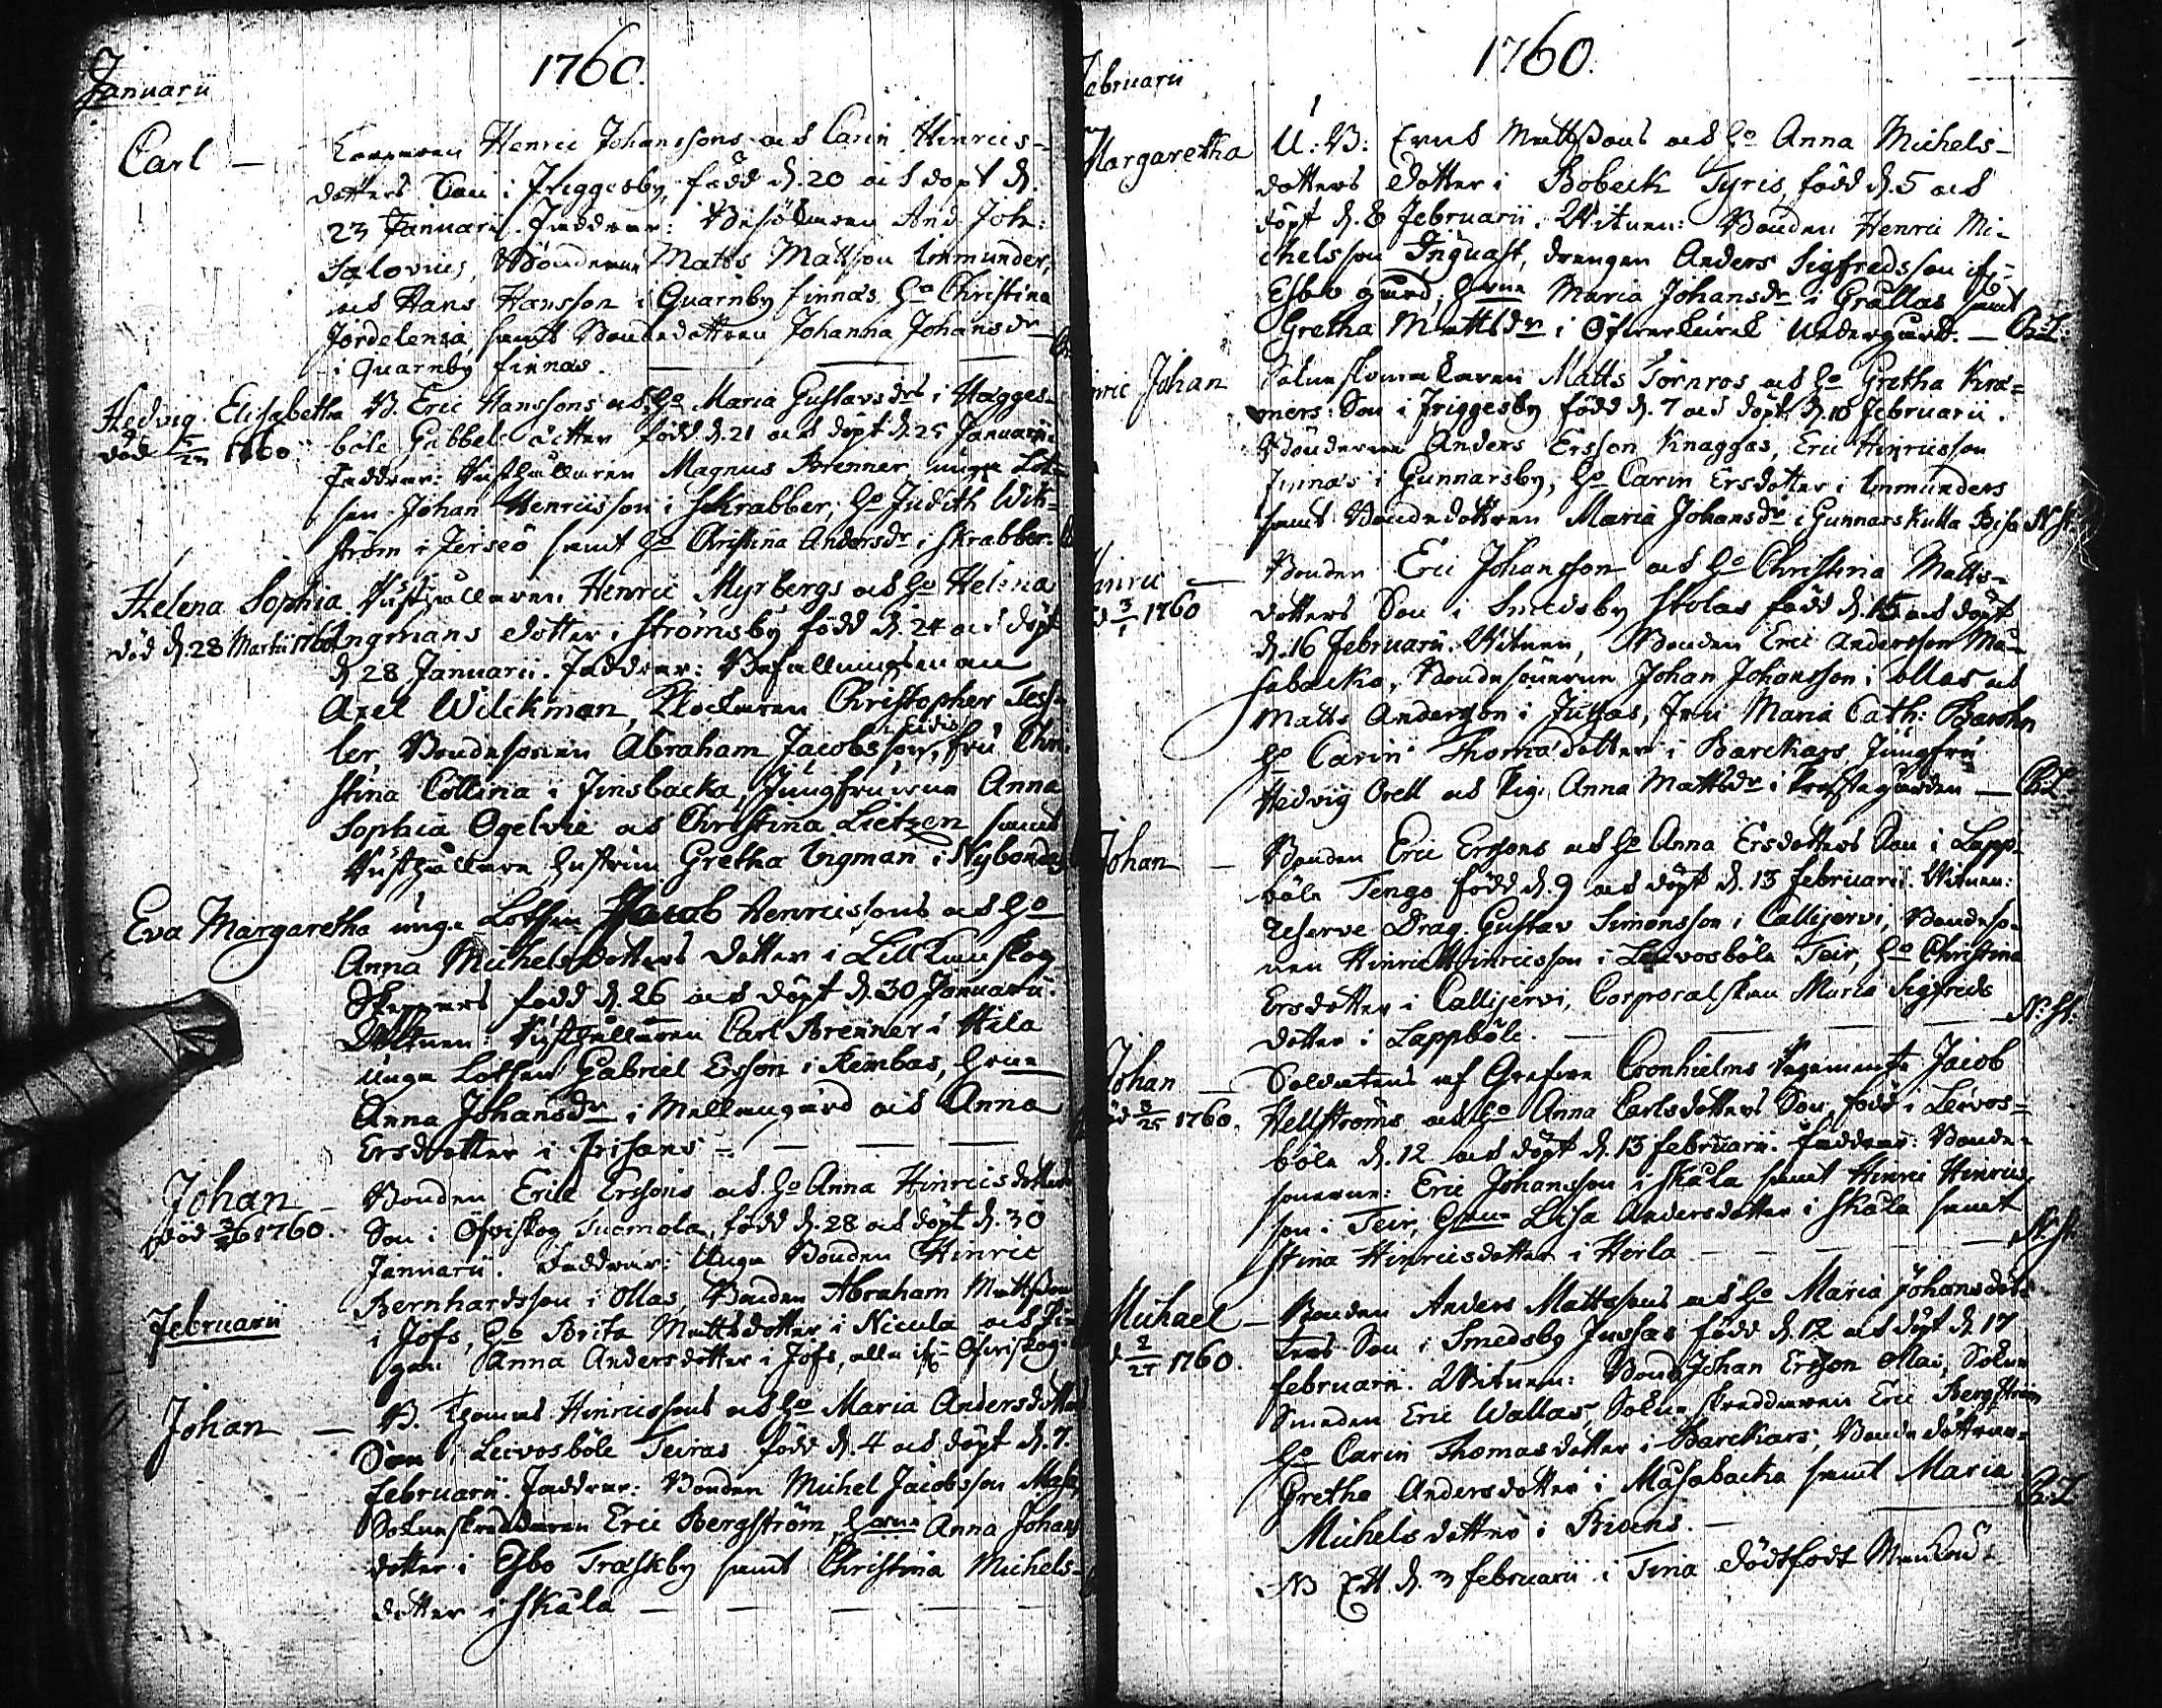 1760.
Januarii
Carl — Henric Johanssons och Carin Hinrics-
dotters Son i Friggesby, född d. 20 och döpt d.
23 Januarii. Faddrar: And Joh:
Salovius, Bönderne Matts Mattson Unmunder,
och Hans Hansson i Quarnby finnas, Ho Christina
Jordelensia, samt Bondedottren Johanna Johansdr
i Quarnby finnas.
Hedvig Elisabetha B. Eric Hanssons och Ho Maria Gustavsdrs i Hägges-
död 1760. böle Gabbels dotter född d. 21 och döpt d. 25 Januarii.
Faddrar: Rusthållaren Magnus Brenner, unge Lot-
sen Johan Henricsson i Skrabber, Ho Judith Wik-
ström i Jerseö samt Ho Christina Andersdr i Skrabber.
Helena Sophia. Rusthållaren Henric Myrbergs och Ho Helena
död d. 28 Martii 1760 Ingmans dotter i Strömsby född d. 24 och döpt
d 28 Januarii. Faddrar: Befallningsman
Axel Wilckman, Klockaren Christopher Tess-
ler, Bondesonen Abraham Jacobsson, fru Chri-
stina Collina i Finsbacka, Jungfrurna Anna
Sophia Ogelvie och Christina Lietzen samt
Rusthållare hustrun Gretha Vigman i Nybondas
Eva Margaretha unge Lotsen Jacob Henricssons och Ho
Anna Michelsdotters dotter i Lill Kanskog
Skeppars född d. 26 och döpt d. 30 Januarii.
Witnen: Rusthållaren Carl Brenner i Hila
Unge Lotsen Gabriel Ersson i Rembas, Hrna
Anna Johansdr i Mellangård och Anna
Ersdotter i Frisans —
Johan — Bonden Eric Erssons och Ho Anna Hinricsdotters
död 1760. Son i Öfviskog Tuomola, född d. 28 och döpt d. 30
Januarii. Faddrar: Unge Bonden Hinric
Bernhardsson i Ollas, Bonden Abraham Mattsson
Februarii i Jofs, Ho Brita Mattsdotter i Nicula och Pi-
gan Anna Andersdotter i Jofs, alla ifr. Öfviskog.
Johan — B. Thomas Hinricssons och Ho Maria Andersdotters
Son i Leivosböle Teiras född d. 4 och döpt d. 7.
Februarii. Faddrar: Bonden Michel Jacobsson
Sokneskreddaren Eric Bergström, Hrna Anna Johans
dotter i Esbo Träskby samt Christina Michels-
dotter i Skåla —
1760.
Februarii
Margaretha U: B: Mattssons och Ho Anna Michels-
dotters dotter i Bobeck Tyris, född d. 5 och
döpt d. 8 Februarii. Witnen: Bonden Henric Mi-
chelsson Ingvast, drengen Anders Sigfredsson ifr
Esbo gård, Hrna Maria Johansdr i Grållas samt
Gretha Mattsdr i Öfverkurck Undergård. —
Johan Matts Törnros och Ho Gretha Krä-
mers Son i Friggesby född d. 7 och döpt d. 10 Februarii.
Bönderne Anders Ersson Knaggas, Eric Hinricsson
Finnas i Gunnarsby, Ho Carin Ersdotter i Unmunders
samt Bondedottren Maria Johansdr i Gunnars Kulla Bisa N. St.
Henric — Bonden Eric Johansson och Ho Christina Matts-
1760 dotters Son i Smedsby Stolas född d. 15 och döpt
d. 16 Februarii. Witnen, Bonden Eric Andersson Må-
sabacka, Bondesönerne Johan Johansson i Ollas och
Matts Andersson i Jussas, Fru Maria Cath:
Ho Carin Thomasdotter i Barckars, Jungfru
Hedvig Orell och Pig. Anna Mattsdr i Prestegården —
Johan — Bonden Eric Erssons och Ho Anna Ersdotters Son i Lapp-
böle Tengo född d. 9 och döpt d. 13 Februarii. Witnen:
Reserve Drag. Gustav Simonsson i Callijervi, Bondeso-
nen Hinric Hinricsson i Leivosböle Teir, Ho Christina
Ersdotter i Callijervi, Corporalskan Maria Sigfreds
dotter i Lappböle. — N. St.
Johan — Soldatens af Grefve Cronhielms Regemente Jacob
1760. Hellströms och Ho Anna Carlsdotters Son, född i Leivos-
böle d. 12 och döpt d. 13 Februarii. Faddrar: Bonde-
sönerne: Eric Johansson i Skåla samt Hinric Hinrics
son i Teir, Hrna Lisa Andersdotter i Skåla samt
Stina Hinricsdotter i Herla — N. St.
Michael — Bonden Anders Mattssons och Ho Maria Johansdot-
1760. ters Son i Smedsby Jussas född d. 12 och döpt d. 17
Februarii. Witnen: Bond. Johan Ersson Ollas, Sokne
Smeden Eric Wallas, Sokneskreddaren Eric Bergström
Ho Carin Thomasdotter i Barckars, Bondedöttrar-
Gretha Andersdotter i Måsabacka samt Maria
Michelsdotter i Bivens. —
NB Ett d. 3 Februarii i Tina dödfödt